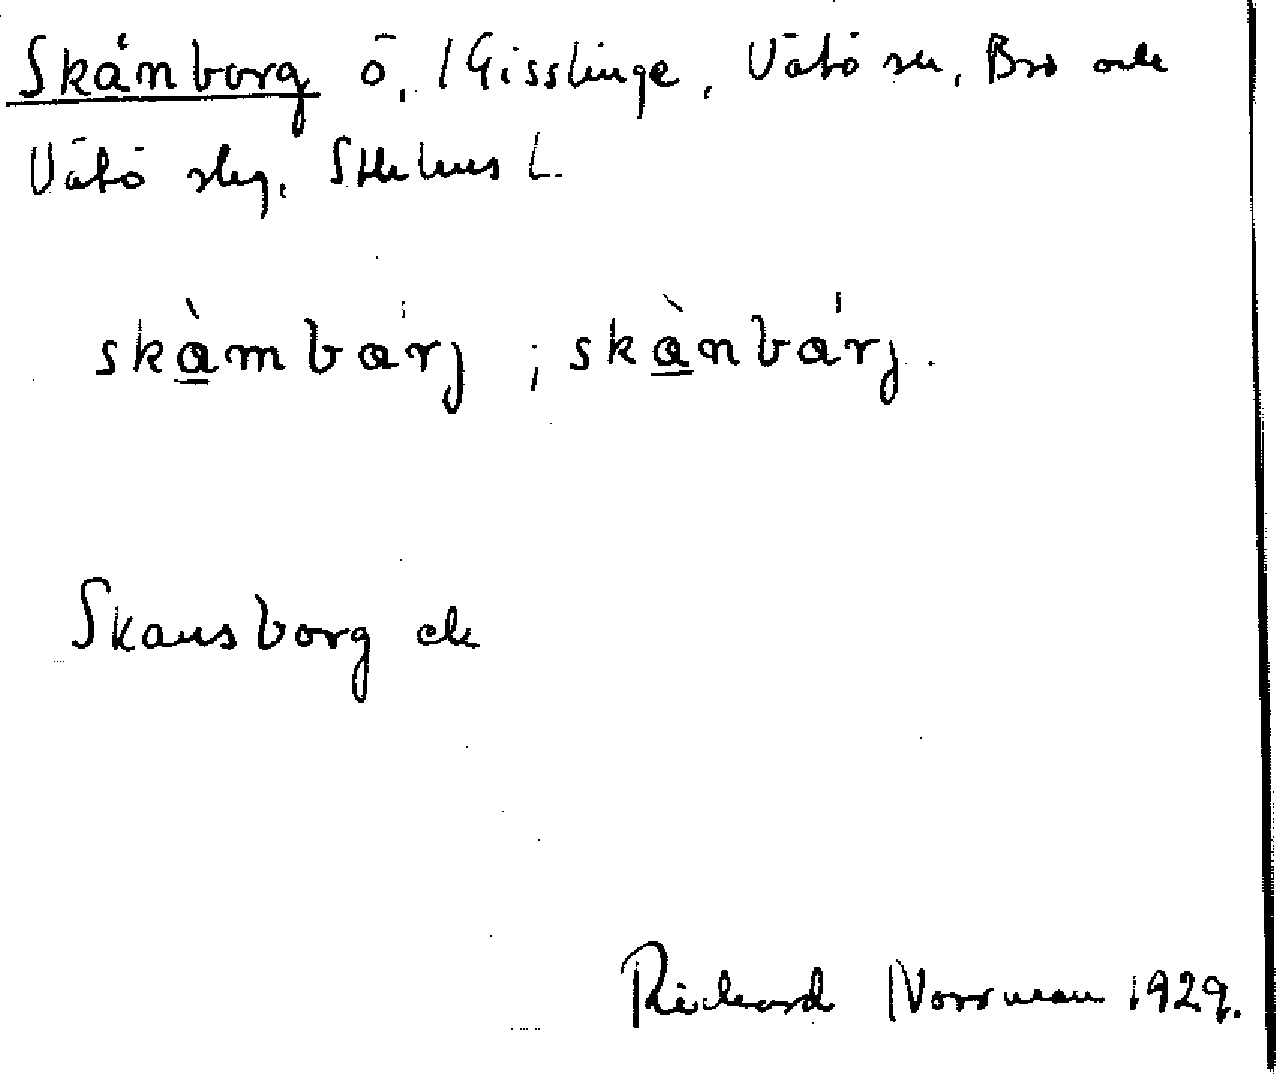 Skånborg ö, /Gisslinge, Vätö sn, Bro och
Vätö slg, Sthlms L.
skàmbárj ; skànbárj.
Skansborg ek
Richard Norrman 1929.